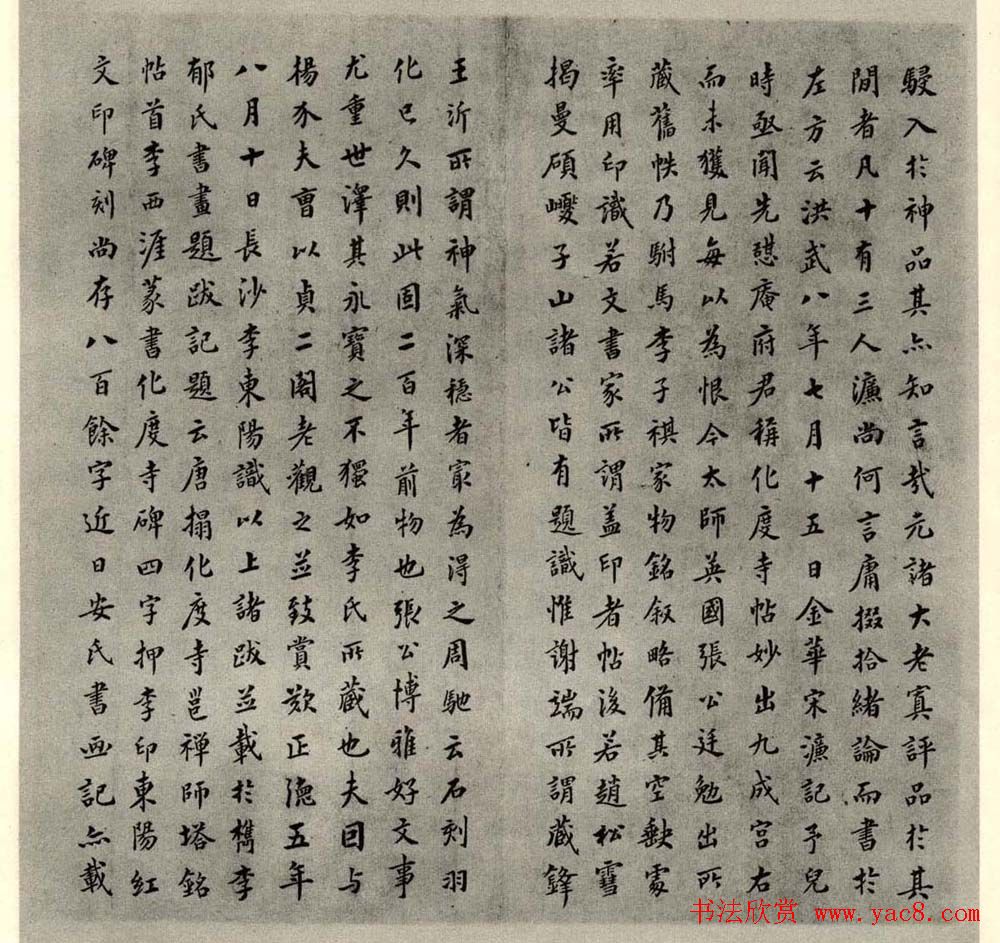 駸入於神品其亦知言哉元諸大老寘評品於其
間者凡十有三人濂尚何言庸掇拾緒論而書於
左方云洪武八年七月十五日金華宋濂記予兒
時亟聞先憇庵府君稱化度寺帖妙出九成宫右
而未獲見每以為恨今太師英國張公廷勉出所
藏舊帙乃駙馬李子祺家物銘叙略備其空缺處
率用印識若文書家所謂盖印者帖後若趙松雪
揭曼碩巙子山諸公皆有題識惟謝端所謂藏鋒
王沂所謂神氣深穩者寂為得之周馳云石刻羽
化已久則此固二百年前物也張公博雅好文事
尤重世澤其永寶之不獨如李氏所藏也夫囙与
楊介夫曺以貞二閣老觀之並致賞歎正德五年
八月十日長沙李東陽識以上諸跋並載於檇李
郁氏書畫題跋記題云唐搨化度寺邕禅師塔銘
帖首李西涯篆書化度寺碑四字押李印東陽紅
文印碑刻尚存八百餘字近日安氏書画記亦載
书法欣赏 www.yac8.com